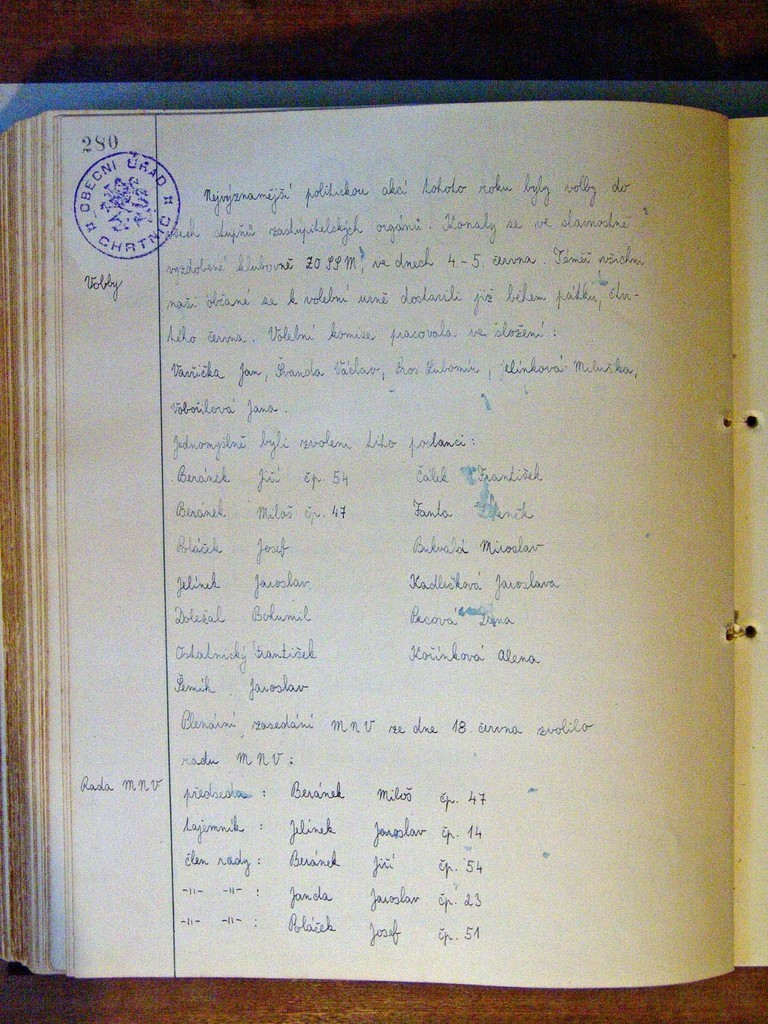 280
OBECNÍ ÚŘAD
CHRTNÍČ
Volby
Nejvýznamnější politickou akcí tohoto roku byly volby do
všech stupňů zastupitelských orgánů. Konaly se ve slavnostně
vyzdobené klubovně ZO SSM, ve dnech 4.-5. června. Téměř všichni
naši občané se k volební urně dostavili již během pátku, čtvr-
tého června. Volební komise pracovala ve složení:
Vavřička Jan, Švanda Václav, Kros Lubomír, Jelínková Miluška,
Vobořilová Jana.
Jednomyslně byli zvoleni tito poslanci:
Beránek Jiří čp. 54 Čálek František
Beránek Miloš čp. 47 Fanta Zdeněk
Poláček Josef Bukvalá Miroslav
Jelínek Jaroslav Kadlečková Jaroslava
Doležal Bohumil Pecová Dana
Ostatnický František Kořínková Alena
Šemík Jaroslav
Plenární zasedání MNV ze dne 18. června zvolilo
radu MNV:
Rada MNV
předseda: Beránek Miloš čp. 47
tajemník: Jelínek Jaroslav čp. 14
člen rady: Beránek Jiří čp. 54
-"- -"- : Janda Jaroslav čp. 23
-"- -"- : Poláček Josef čp. 51